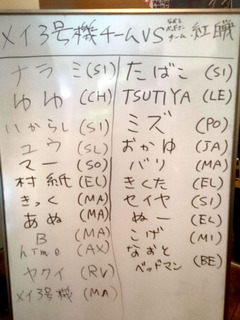 メイ3号機チームVS 紅職
ナラミ(SI) たばこ(SI)
ゆゆ(CH) TSUTIYA(LE)
いからし(SI) ミズ(PO)
ユウ(SL) おかゆ(JA)
マー(SO) バリ(MA)
村紙(EL) きくた(EL)
きっく(MA) セイヤ(SI)
あぬ(MA) ぬー(EL)
B(MA) こげ(MI)
hTme(AX) なおと
ヤクイ(RV) ベッドマン(BE)
メイ3号機(MA)